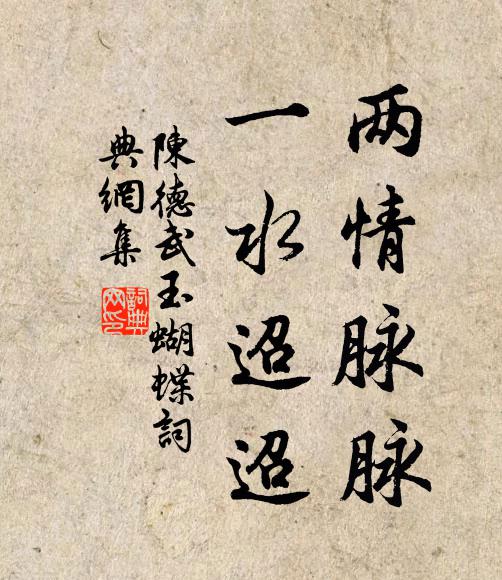 两情脉脉
一水迢迢
陳德武玉蝴蝶詞
典網集
詞典
网印